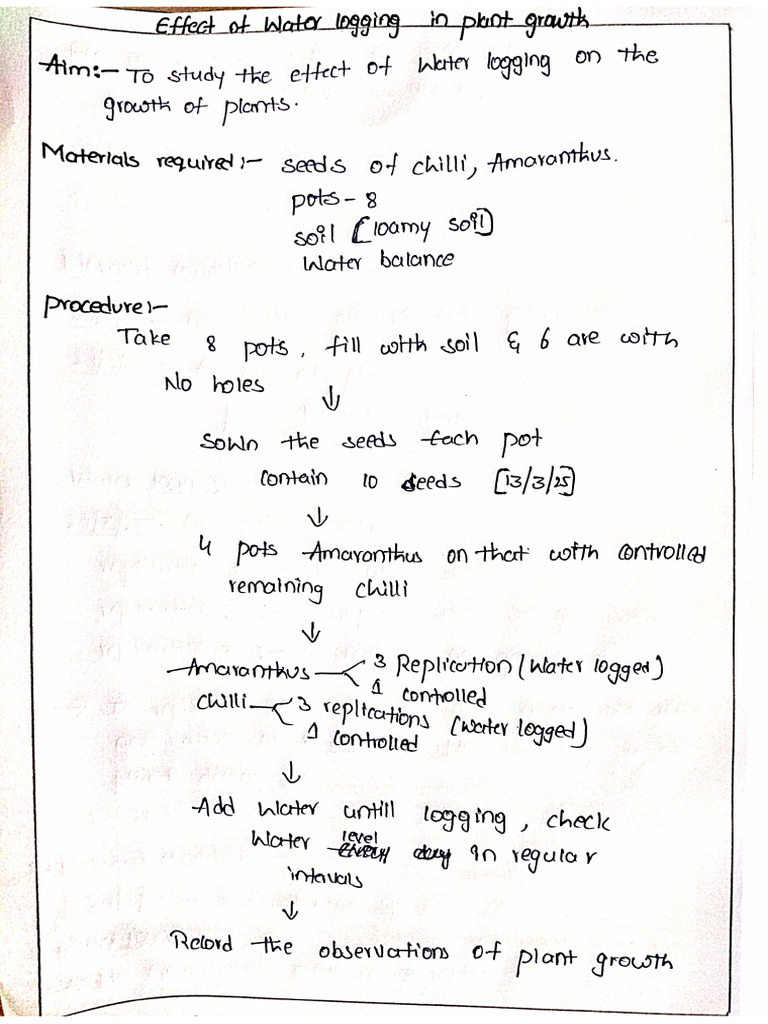 Effect of Water logging in plant growth
Aim:- To study the effect of Water logging on the
growth of plants.
Materials required:- seeds of chilli, Amaranthus.
pots - 8
soil [loamy soil]
Water balance
procedure:-
Take 8 pots, fill with soil & 6 are with
No holes
↓
Sown the seeds each pot
contain 10 seeds [13/3/25]
↓
4 pots Amaranthus on that with controlled
remaining chilli
↓
Amaranthus 3 Replication (Water logged)
1 controlled
chilli 3 replications (Water logged)
1 controlled
↓
Add Water untill logging, check
Water level in regular
intervals
↓
Record the observations of plant growth